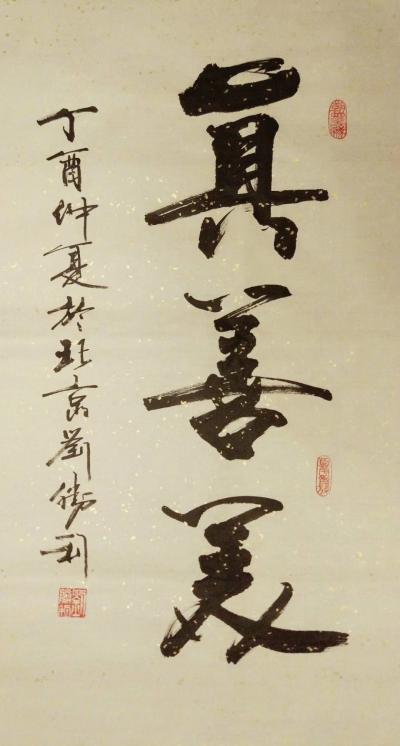 真善美
丁酉仲夏於北京劉勝利